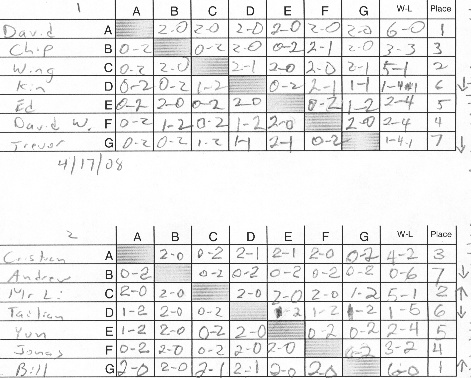 1 A B C D E F G W-L Place
David A 2-0 2-0 2-0 2-0 2-0 2-0 6-0 1
Chip B 0-2 0-2 2-0 0-2 2-1 2-0 3-3 3
Wing C 0-2 2-0 2-1 2-0 2-0 2-1 5-1 2
Kin D 0-2 0-2 1-2 0-2 2-1 1-1 6 ↓
Ed E 0-2 2-0 0-2 2-0 0-2 1-2 2-4 5
David W. F 0-2 1-2 0-2 1-2 2-0 2-0 2-4 4
Trevor G 0-2 0-2 1-2 1-1 2-1 0-2 1-4-1 7 ↓
4/17/08
2 A B C D E F G W-L Place
Cristian A 2-0 0-2 2-1 2-1 2-0 0-2 4-2 3
Andrew B 0-2 0-2 0-2 0-2 0-2 0-2 0-6 7 ↓
Mr Li C 2-0 2-0 2-0 2-0 2-0 1-2 5-1 2 ↑
D 1-2 2-0 0-2 1-2 1-2 1-5 6 ↓
Yun E 1-2 2-0 0-2 2-0 0-2 0-2 2-4 5
Jonas F 0-2 2-0 0-2 2-0 2-0 0-2 3-2 4
Bill G 2-0 2-0 2-1 2-1 2-0 2-0 6-0 1 ↑